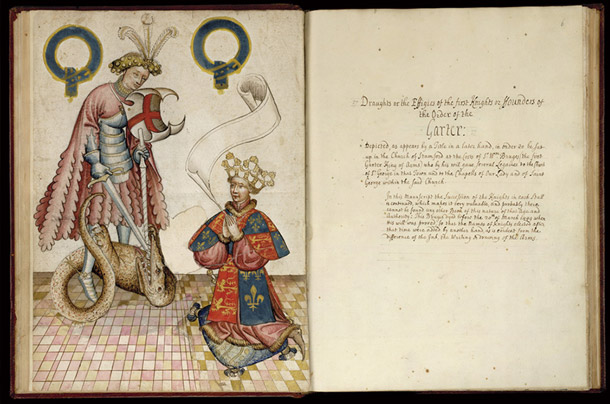 Draughts or the Effigies of the first Knights or Founders of
the Order of the
Garter:
Depicted, as appears by a Title in a later hand, in order to be set
up in the Church of Stamford at the Costs of Sr. Wm. Bruges the first
Garter King of Arms) who by his will gave several Legacies to the
of St. George in that Town and to the Chapells of Our Lady and of Saint
George within the said Church.
In this Manuscript the Succession of the Knights in each Stall
is continued, which makes it very valuable, and probably there
cannot be found any other Book of this nature of this Age and
Authority. This Bruges died before the of March 1449 when
his will was proved, so that the Names of Knights elected after
that time were added by another hand, as is evident from the
difference of the Ink, the Writing & drawing of the Arms.